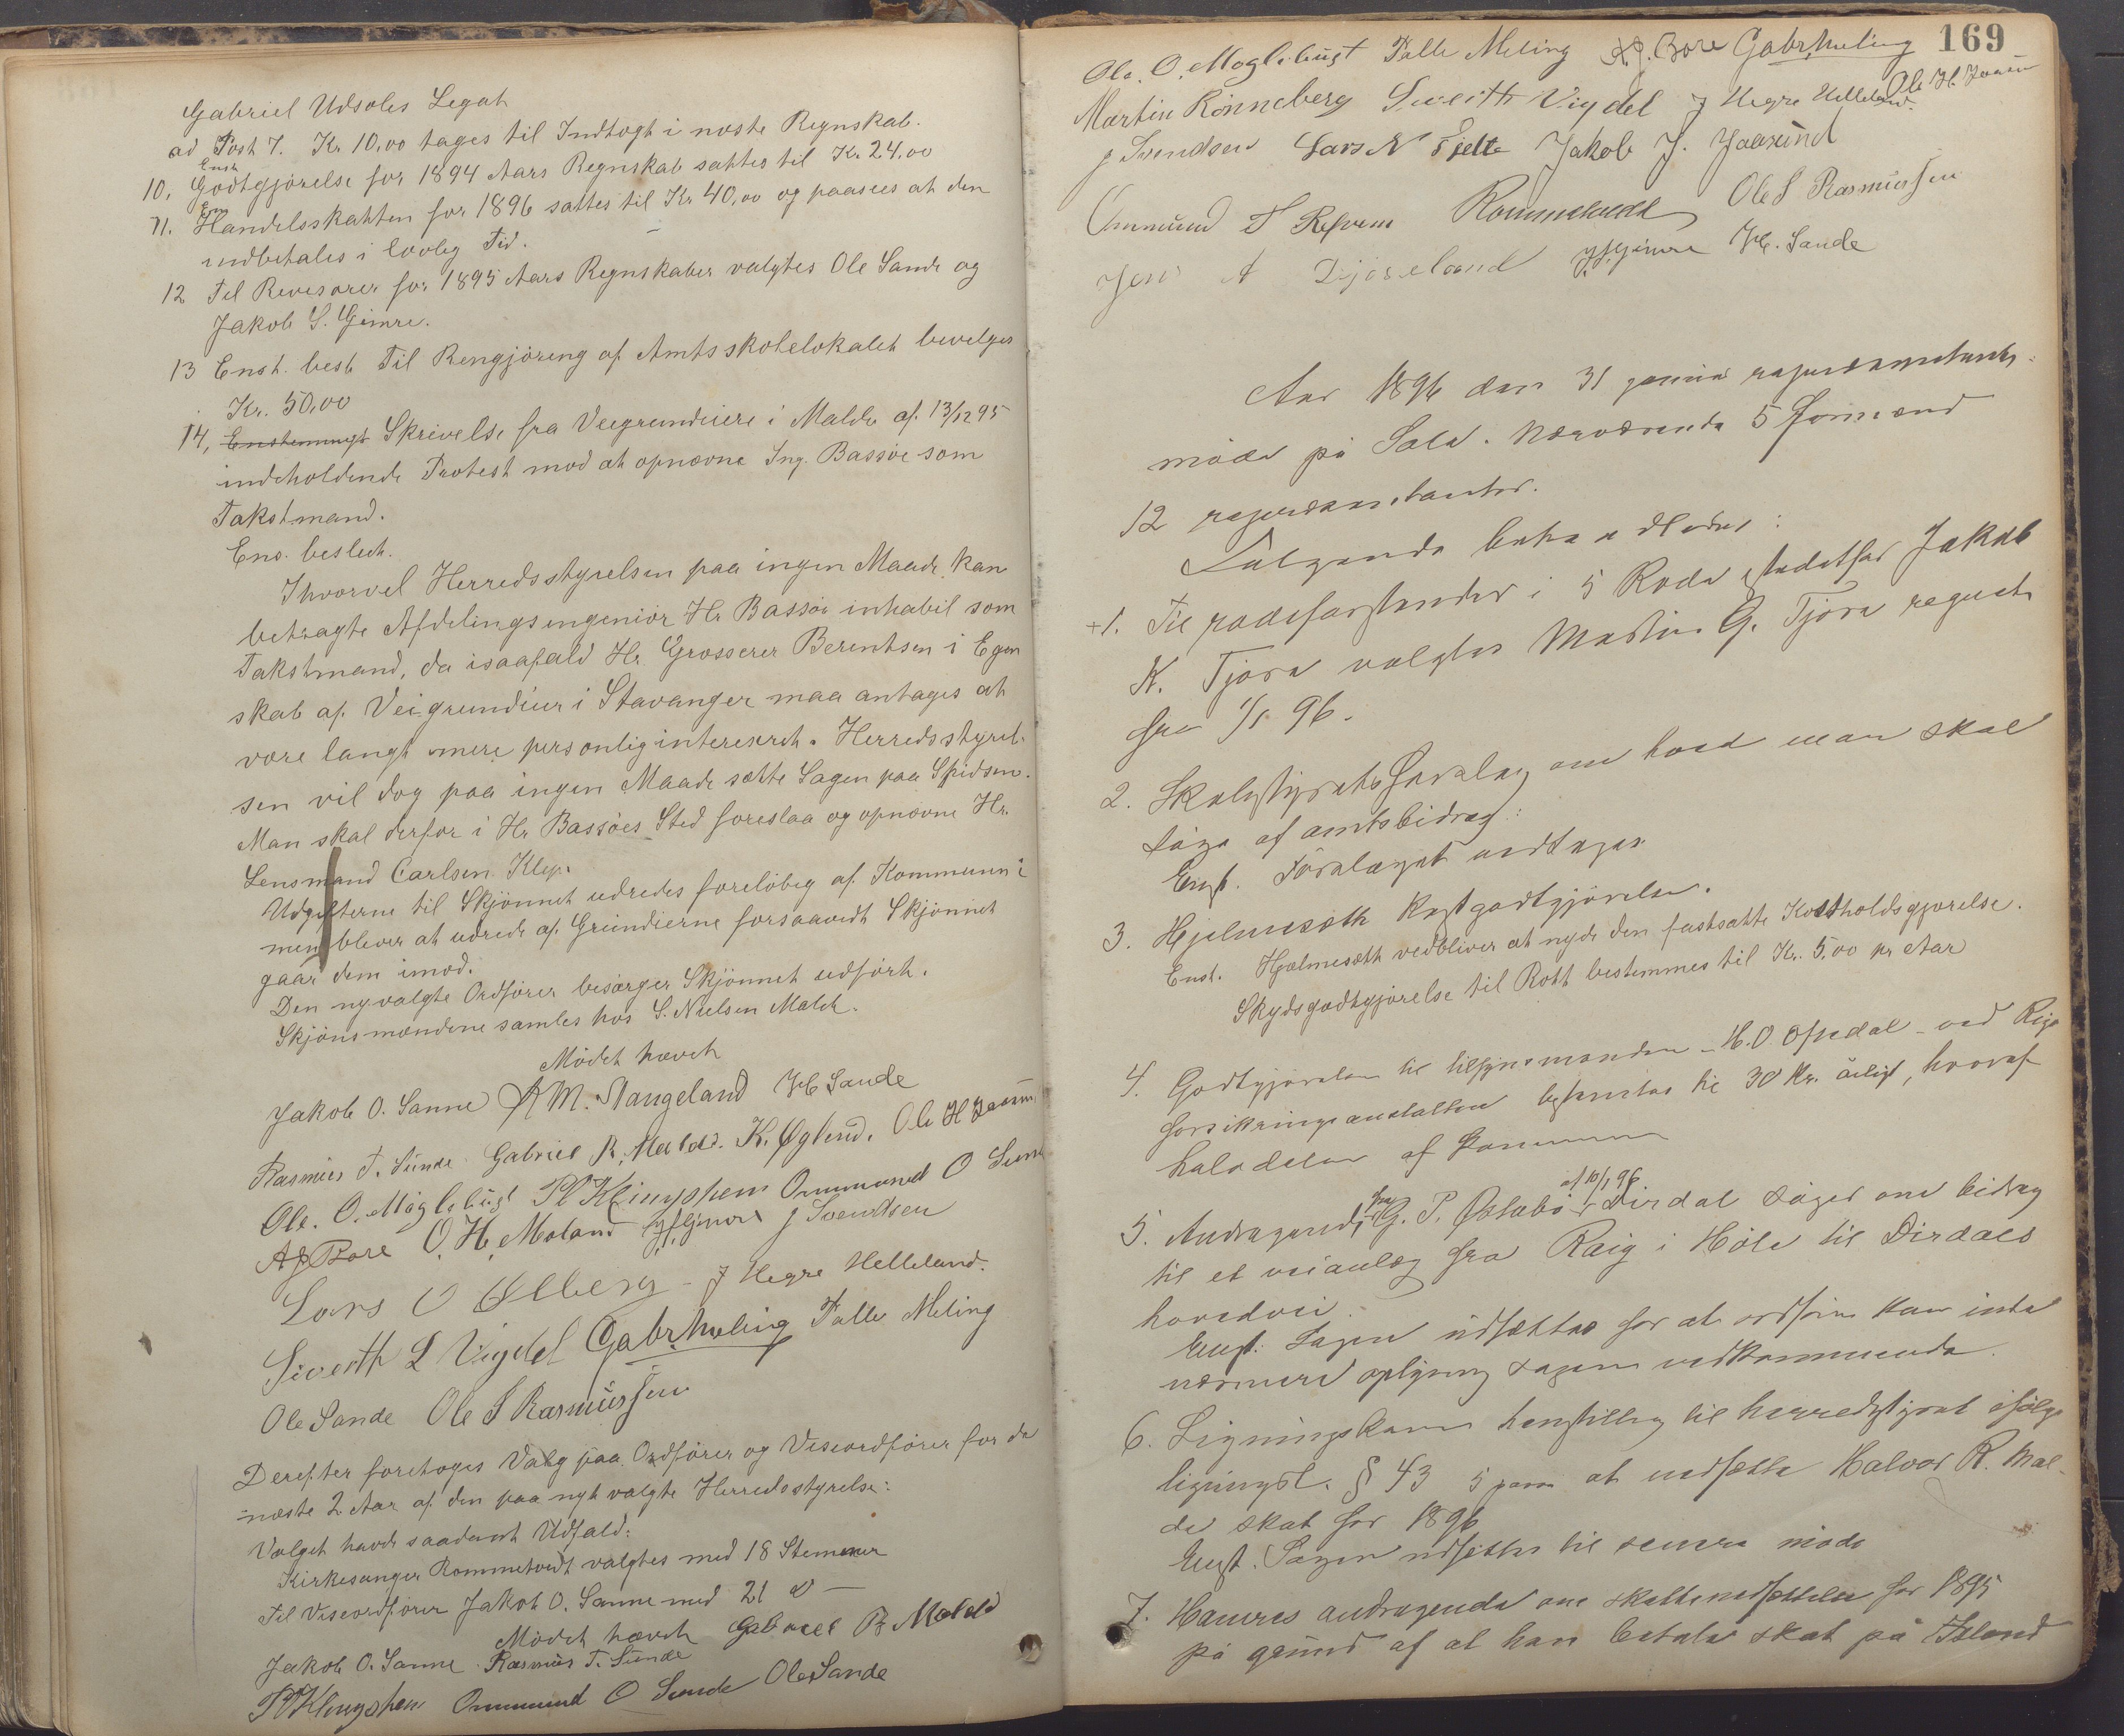 Gabriel Udsolas Legat
ad Post 7. Kr 10,00 tages til Indtægt i næste Regnskab.
10, Enst. Godtgjørelse for 1894 Aars Regnskab sattes til Kr 24.00
11. Ens Handelsskatten for 1896 sattes til Kr 40,00 og paasees at den
indbetales i lovlig Tid.
12 Til Revisorer for 1895 Aars Regnskaber valgtes Ole Sande og
Jakob S. Gimre.
13 Enst. besl. Til Rengjøring af Amtsskolelokalet bevilges
Kr. 50,00
14, Enstemmigt Skrivelse fra Veigrundeiere i Malde af 13/12 95
indeholdende Protest mod at opnævne Ing. Bassøe som
Takstmand.
Ens. beslut.
Ihvorvel Herredsstyrelsen paa ingen Maade kan
betragte Afdelingsingeniør Hr Bassøe inhabil som
Takstmand, da isaafald Hr. Grosserer Berentsen i Egen
skab af Veigrundeier i Stavanger maa antages at
være langt mere personlig interesert. Herredsstyrel-
sen vil dog paa ingen Maade sætte Sagen paa Spidsen.
Man skal derfor i Hr Bassøes Sted foreslaa og opnævne Hr.
Lensmand Carlsen Klep.
Udgifterne til Skjønnet udredes foreløbig af Kommunen
men bliver at udrede af Grundeierne forsaavidt Skjønnet
gaar dem imod.
Den nyvalgte Ordfører besørger Skjønnet udført.
Skjønsmændene samles hos S. Nielsen Malde.
Mødet hævet
Jakob O. Sanne A M. Stangeland H Sande
Rasmus T. Sunde Gabriel B. Malde. K. Øglend. Ole H Jaasund
Ole. O. Møglebust P Klungshem Ommund O Sunde
A J Bore O. H. Moland J. S. Gimre J Svendsen
Lars O Ølberg - J Hegre Helleland.
Siverth L Vigdel Gabr. Meling Talle Meling
Ole Sande Ole S Rasmussen
Derefter foretoges Valg paa Ordfører og Viseordfører for de
næste 2 Aar af den paa nyt valgte Herredsstyrelse:
Valget havde saadant Udfald:
Kirkesanger Rommetvedt valgtes med 18 Stemmer
Til Viseordfører Jakob O. Sanne med 21 d —
Mødet hævet Gabriel B Malde
Jakob O. Sanne. Rasmus T. Sunde
P Klungshem Ommund O Sunde Ole Sande
169
Ole. O. Møglebust Talle Meling A. J. Bore Gabr. Meling
Martin Rönneberg Siverth Vigdel J Hegre Helleland. Ole H. Jaasund
J Svendsen Lars N Tjelte Jakob J. Jaasund
Ommund T Refsnes Rommetvedt Ole S Rasmussen
Jens A Kjöseland J S Gimre H. Sande
Aar 1896 den 31 januar repræsentants-
møde på Sola. Nærværende 5 formænd
12 repræsentanter.
Følgende behandledes:
+1. Til rodeforstander i 5 Rode istedetfor Jakob
K. Tjora valgtes Martin G. Tjora regnet
fra 1/1 96.
2. Skolestyrets forslag om hvad man skal
søge af amtsbidrag:
Enst. Forslaget vedtages.
3. Hjelmesæth kostgodtgjørelse.
Enst. Hjelmesæth vedbliver at nyde den fastsatte Kostholdsgjørelse.
Skydsgodtgjørelse til Rott bestemmes til Kr. 5,00 pr Aar
4. Godtgjørelse til tilsynsmanden - H. O. Opsedal - ved Riga
forsikringsanstalten bestemtes til 30 Kr. årligt, hvoraf
halvdelen af kommunen
5. Andragende fra G. P. Østabø, Dirdal af 10/1 96 søger om bidrag
til et veianlæg fra Raig i Høle til Dirdals
hovedvei.
Enst. Sagen udsættes for at ordføren kan inde
nærmere oplysning sagen vedkommende.
6. Ligningskom henstilling til herredsstyret ifølge
ligningsl. § 43 5 pas at nedsætte Halvor R. Mal-
de skat for 1896
Enst. Sagen udsættes til senere møde
7. Haures andragende om skattenedsættelse for 1895
på grund af at han betaler skat på Island